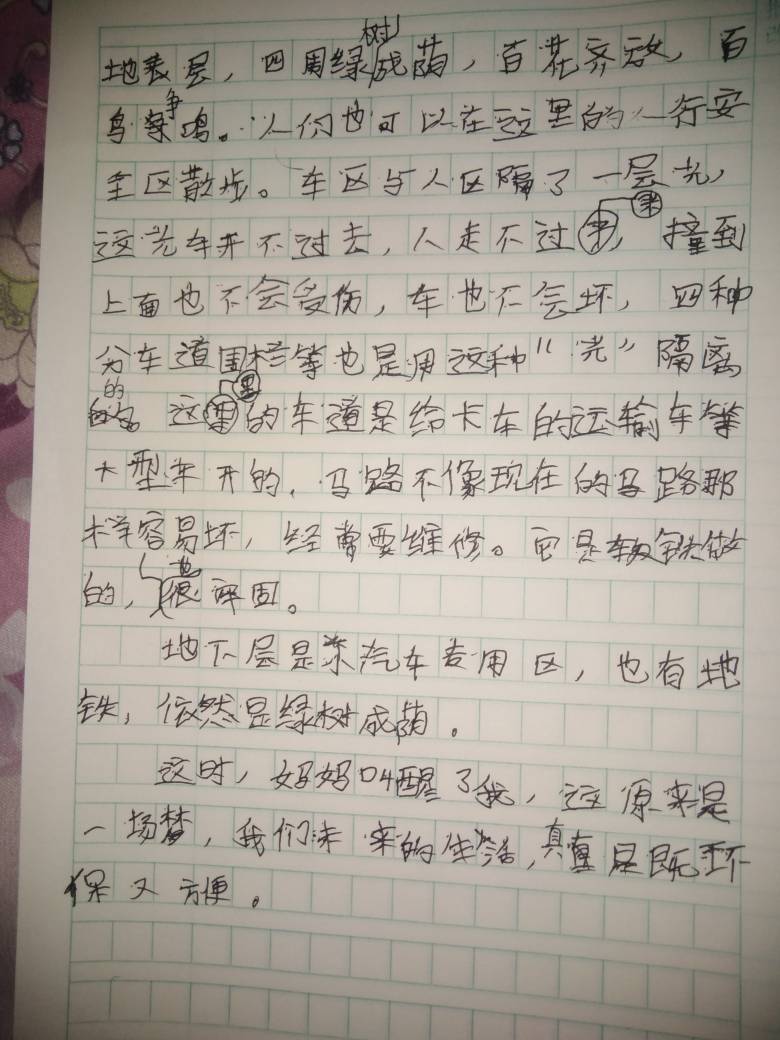 地表层，四周绿树成荫，百花齐放，百
鸟争鸣。人们也可以在这里的人行安
全区散步。车区与人区隔了一层光，
这光车开不过去，人走不过来，撞到
上面也不会受伤，车也不会坏，四种
分车道围栏等也是用这种“光”隔离
的。这里的车道是给卡车的运输车等
大型车开的，马路不像现在的马路那
样容易坏，经常要维修。它是软铁做
的，也很牢固。
地下层是汽车专用区，也有地
铁，依然是绿树成荫。
这时，妈妈叫醒了我，这原来是
一场梦，我们未来的生活，真是既环
保又方便。